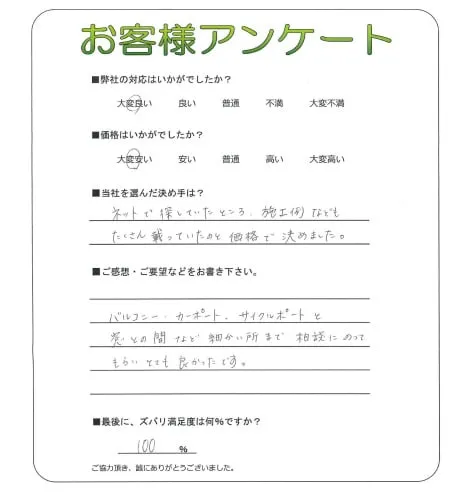 お客様アンケート
■弊社の対応はいかがでしたか？
大変良い 良い 普通 不満 大変不満
■価格はいかがでしたか？
大変安い 安い 普通 高い 大変高い
■当社を選んだ決め手は？
ネットで探していたところ、施工例なども
たくさん載っていたのと価格で決めました。
■ご感想・ご要望などをお書き下さい。
バルコニー・カーポート、サイクルポートと
窓との間など細かい所まで相談にのって
もらいとても良かったです。
■最後に、ズバリ満足度は何％ですか？
100 ％
ご協力頂き、誠にありがとうございました。